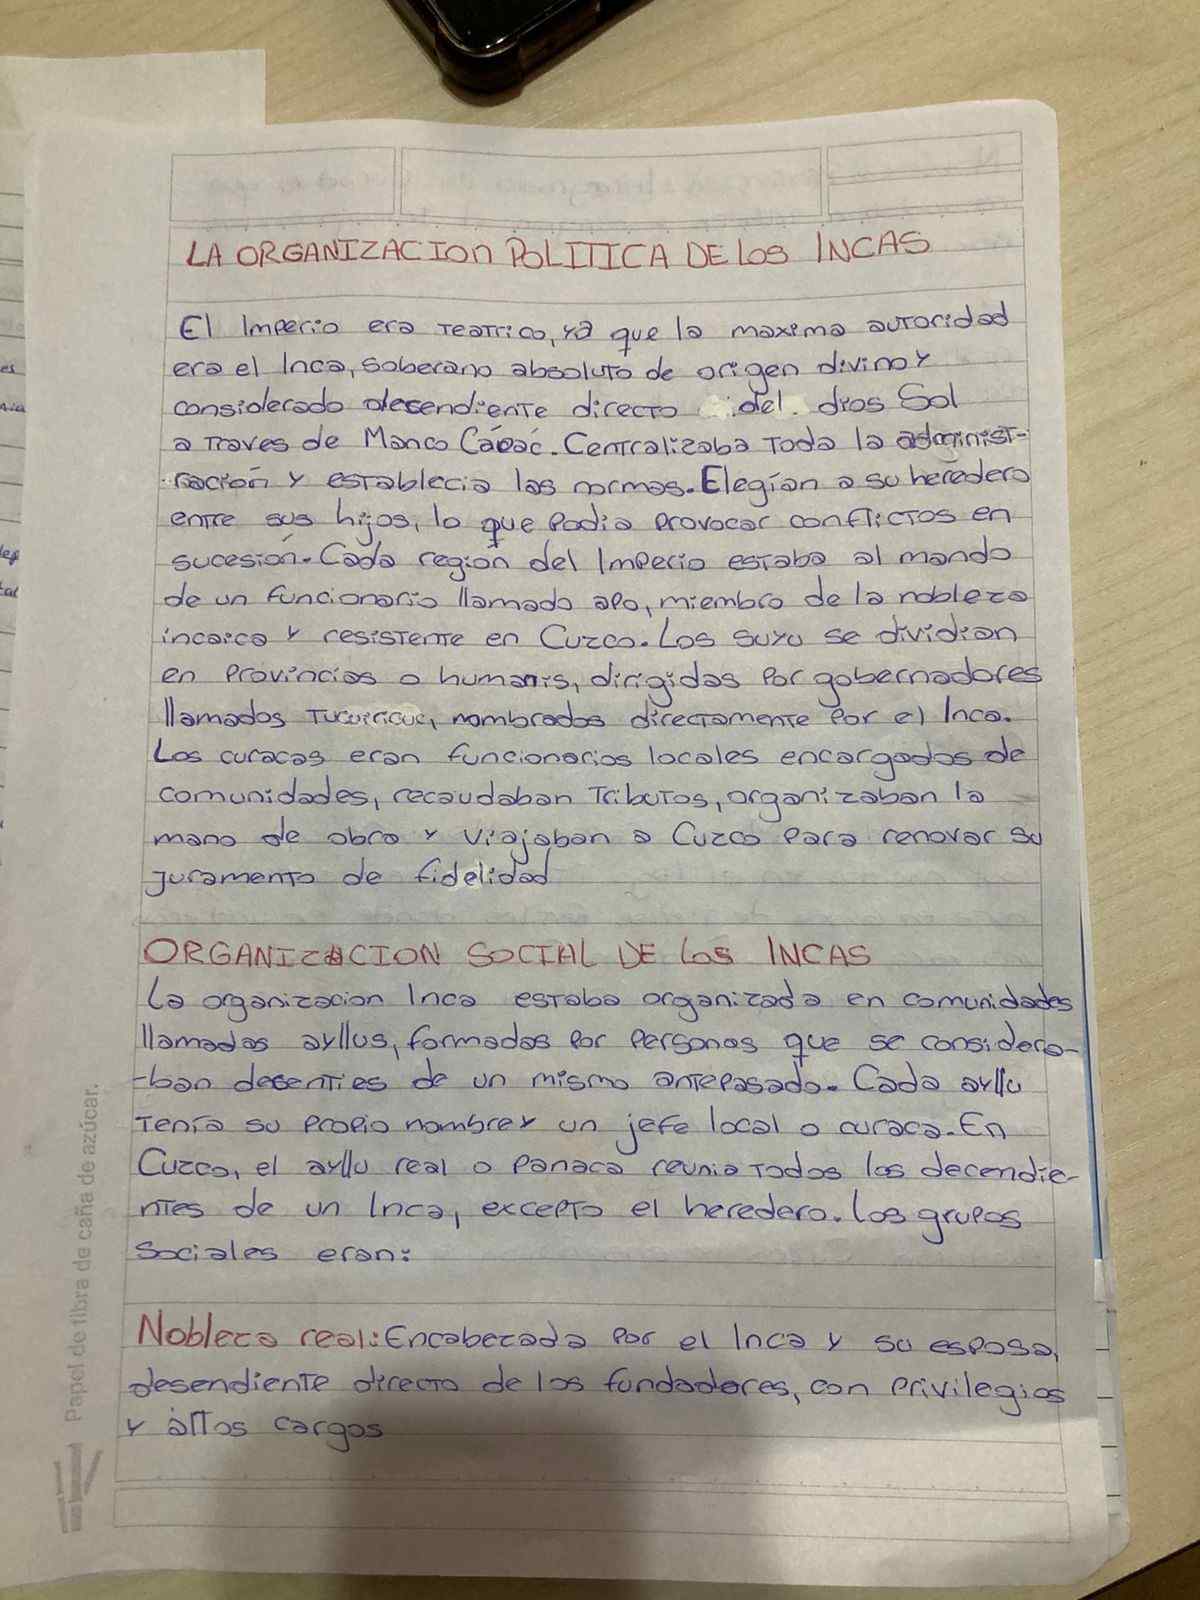 LA ORGANIZACION POLITICA DE LOS INCAS
El Imperio era teatrico, ya que la maxima autoridad
era el Inca, soberano absoluto de origen divino y
considerado decendiente directo del dios Sol
a traves de Manco Cápac. Centralizaba toda la administ-
ración y establecia las normas. Elegían a su heredero
entre sus hijos, lo que podia provocar conflictos en
sucesión. Cada región del Imperio estaba al mando
de un funcionario llamado apo, miembro de la nobleza
incaica y resistente en Cuzco. Los suyu se dividian
en provincias o humanis, dirigidas por gobernadores
llamados Tucuiricuc, nombrados directamente por el Inca.
Los curacas eran funcionarios locales encargados de
comunidades, recaudaban tributos, organizaban la
mano de obra y viajaban a Cuzco para renovar su
juramento de fidelidad
ORGANIZACION SOCIAL DE LOS INCAS
La organizacion Inca estaba organizada en comunidades
llamadas ayllus, formadas por personas que se considera-
-ban decenties de un mismo antepasado. Cada ayllu
tenía su propio nombre y un jefe local o curaca. En
Cuzco, el ayllu real o panaca reunia todos los decendie-
ntes de un Inca, excepto el heredero. Los grupos
sociales eran:
Nobleza real: Encabezada por el Inca y su esposa,
desendiente directa de los fundadores, con privilegios
y altos cargos
Papel de fibra de caña de azúcar.